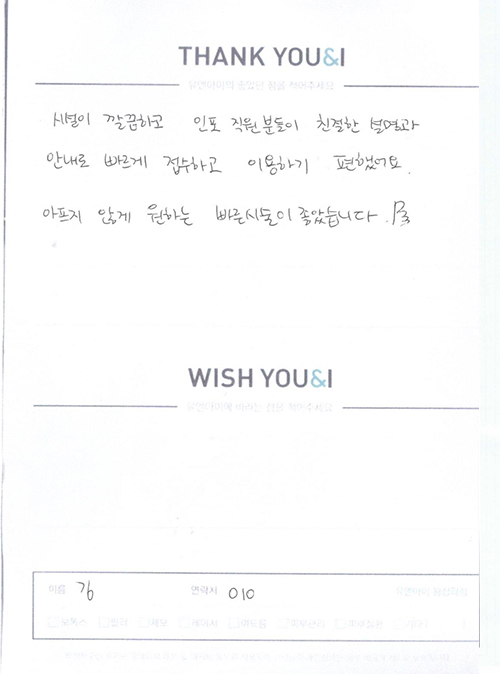 THANK YOU&I
유앤아이의 좋았던 점을 적어주세요
시설이 깔끔하고 인포 직원분들이 친절한 설명과
안내로 빠르게 접수하고 이용하기 편했어요.
아프지 않게 원하는 빠른시술이 좋았습니다.
WISH YOU&I
유앤아이에 바라는 점을 적어주세요
이름 김 연락처 010
보톡스 필러 제모 레이저 여드름 피부관리 기타